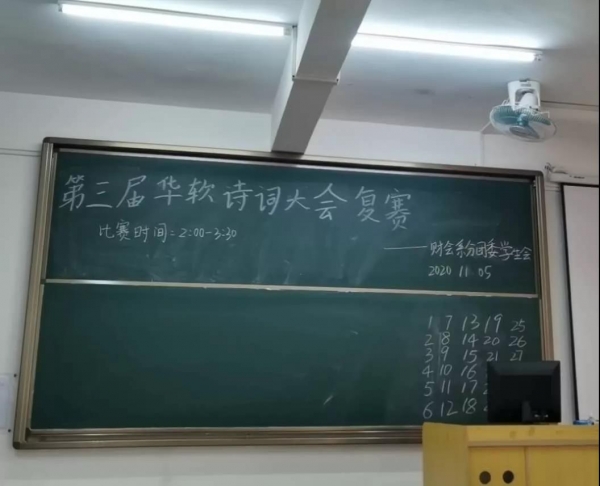 第三届华软诗词大会复赛
比赛时间:2:00-3:30
——财会系分团委学生会
2020 11 05
1 7 13 19 25
2 8 14 20 26
3 9 15 21 27
4 10 16
5 11 17
6 12 18